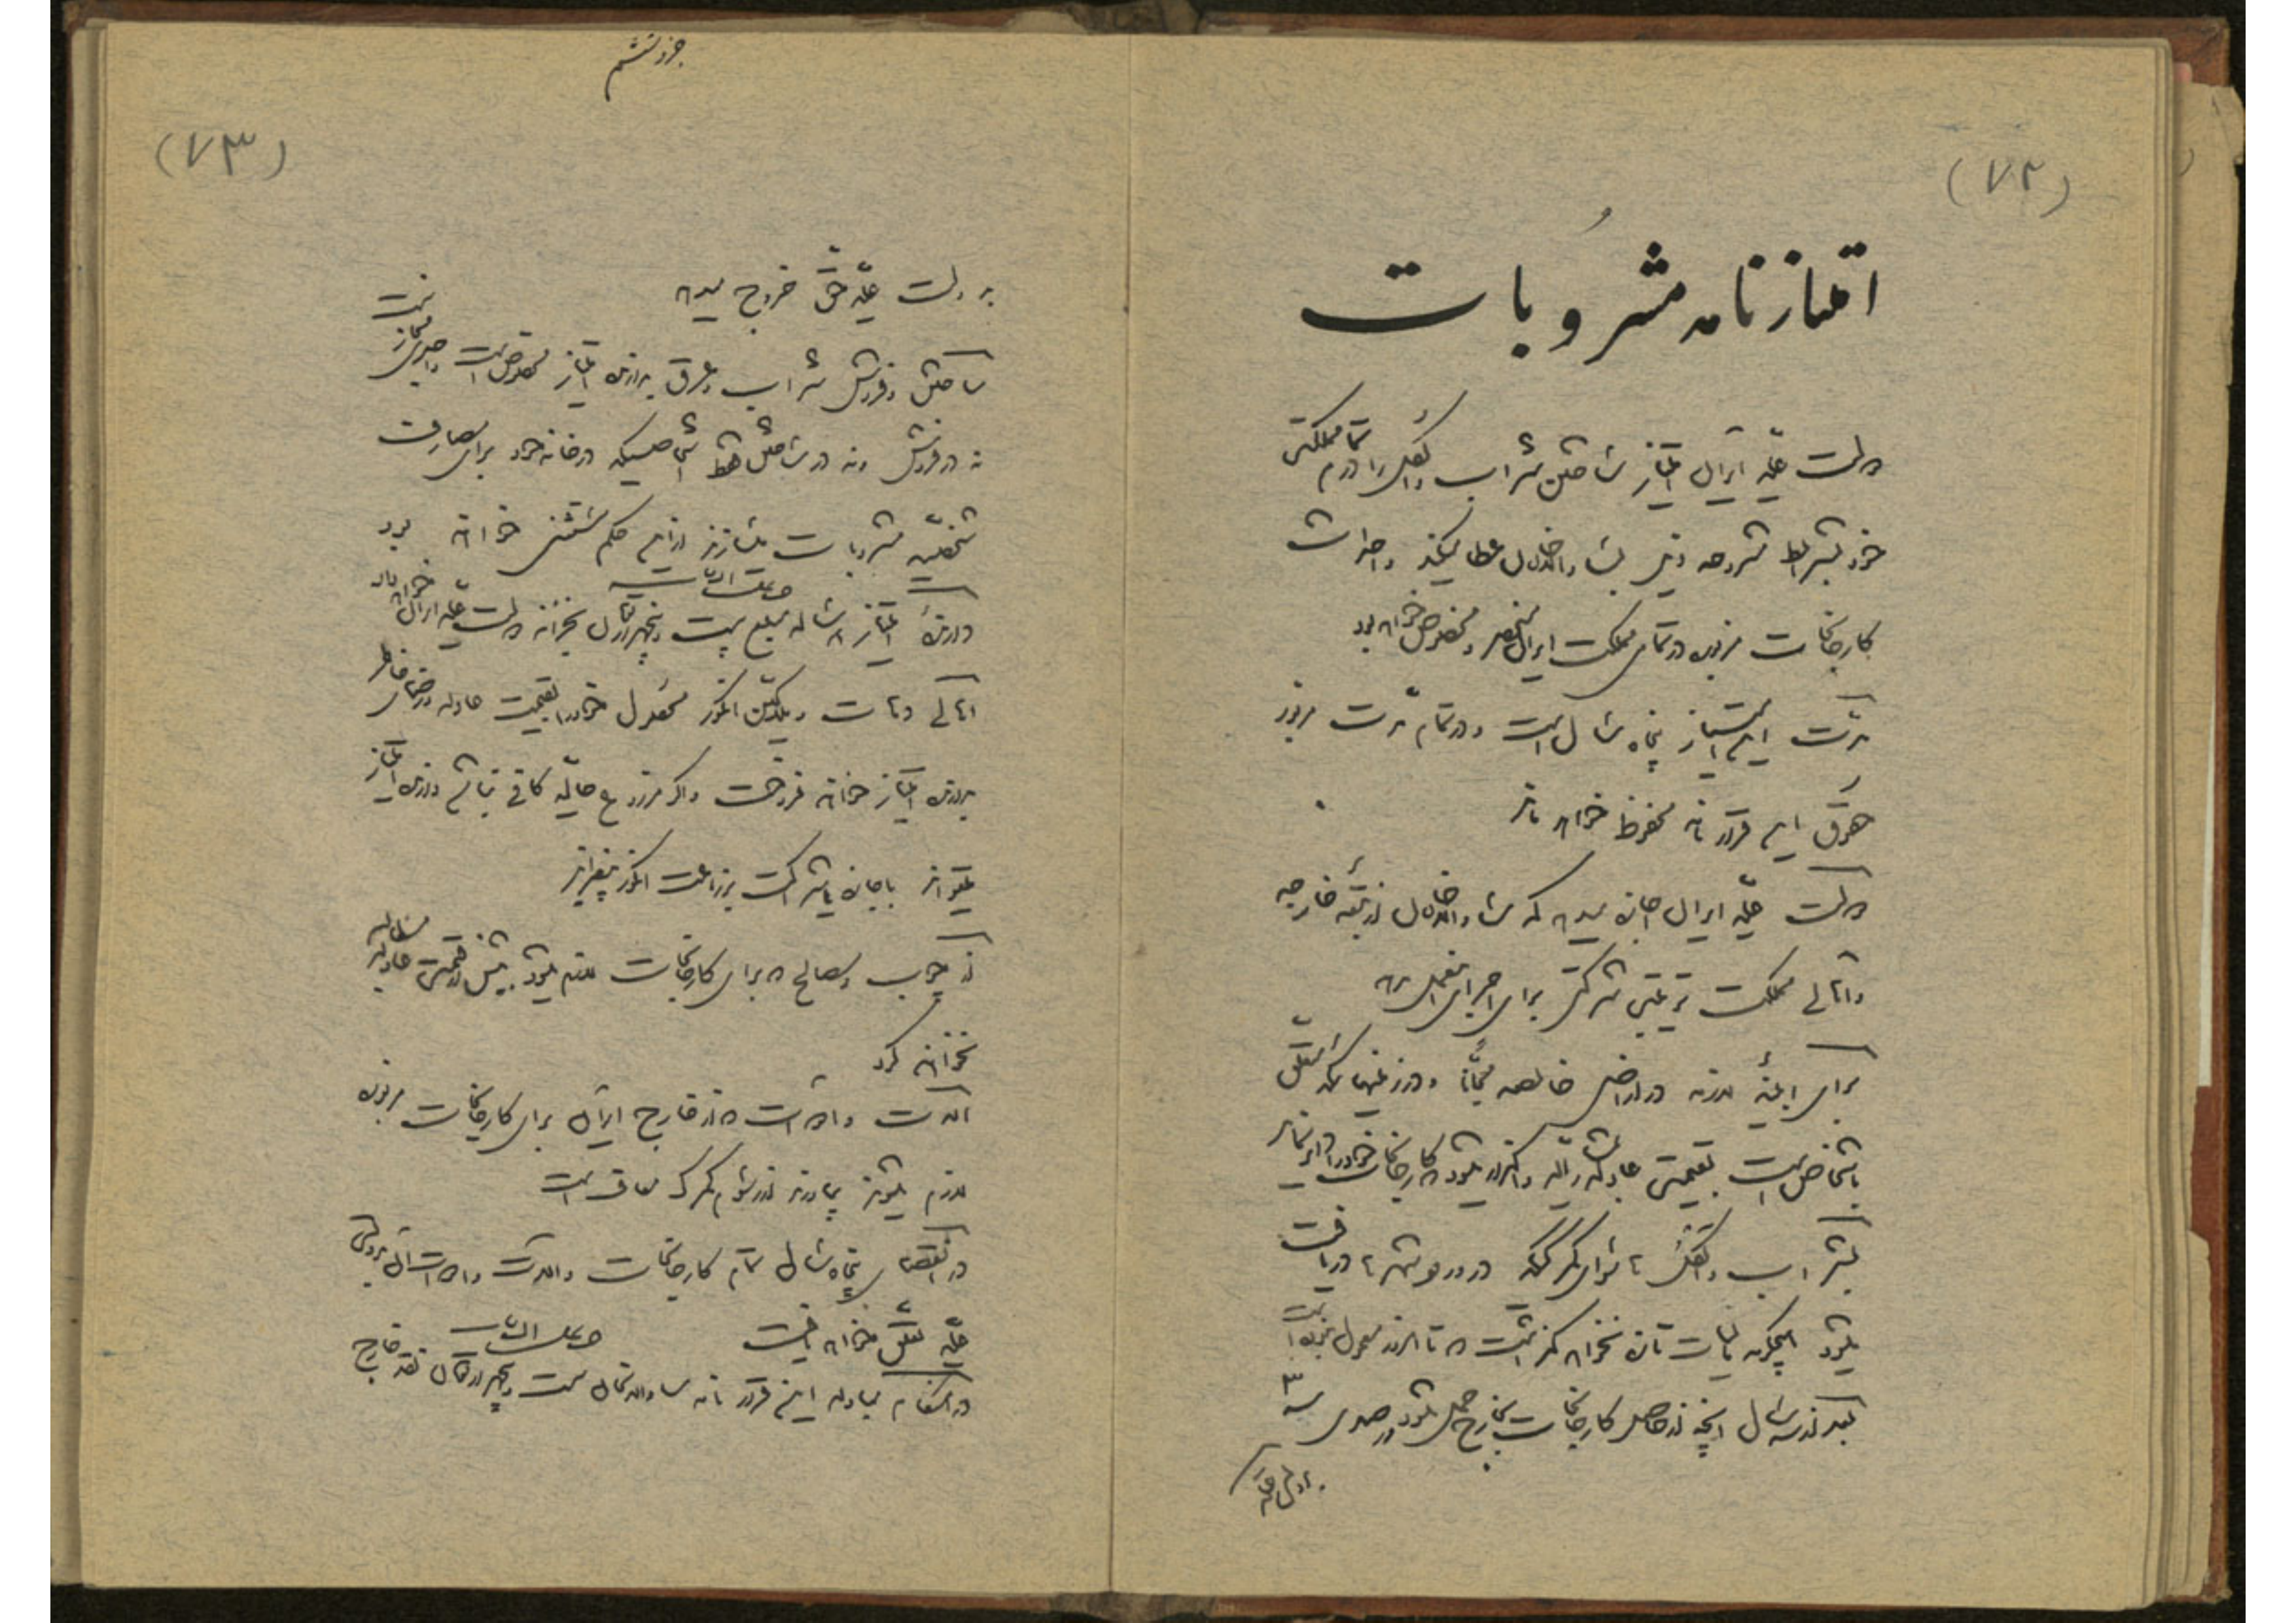 (۷۲)
امتیازنامه مشروبات
دولت علیه ایران امتیاز ساختن شراب و الکل را در تمام مملکت
خود بشرایط مشروحه ذیل عطا میکند و احداث
کارخانجات مزبوره در تمام مملکت ایران منحصر و مخصوص خواهد بود
مدت این امتیاز پنجاه سال است و در تمام مدت مزبور
حقوق این قرارنامه محفوظ خواهد ماند
دولت علیه ایران اجازه میدهد که از تبعه خارجه
و اهالی مملکت ترتیب شرکتی برای اجرای این عمل بدهد
برای ابنیه لازمه در اراضی خالصه مجاناً و در زمینهائیکه متعلق
باشخاص است بقیمتی عادله واگذار میشود که کارخانجات خود را دایر نماید
بشراب و الکل سوای گمرکی که در ورود شهرها دریافت
میشود هیچگونه مالیات تازه نخواهد گذاشت که تا امروز معمول نبوده است
بعد از سه سال آنچه از حاصل کارخانجات بخارج حمل شود از صدی سه ۳
بدولت علیه
جزو ششم
(۷۳)
بدولت علیه حق خروج میدهد
ساختن و فروش شراب و عرق بدارنده امتیاز مخصوص است و احدی مجاز نیست
نه در فروش و نه در ساختن فقط اشخاصیکه در خانه خود برای مصارف
شخصیه مشروبات میسازند از این حکم مستثنی خواهند بود
دارنده امتیاز هر ساله مبلغ بیست و پنجهزار تومان بخزانه دولت علیه ایران خواهد داد
اهالی دهات و بلدی انگور محصول خود را بقیمت عادله و رضای خاطر
بدارنده امتیاز خواهند فروخت و اگر مزروع حالیه کافی نباشد دارنده امتیاز
میتواند با اجاره یا شراکت بزراعت انگور بیفزاید
از چوب و مصالح که برای کارخانجات لازم میشود بیش از قیمت عادله مطالبه
نخواهند کرد
آلات و ادوات که از خارج ایران برای کارخانجات مزبوره
لازم میشود بیاورند از رسوم گمرک معاف است
در انقضای پنجاه سال تمام کارخانجات و آلات و ادوات آن بدولت
علیه تعلق خواهد یافت
در هنگام مبادله این قرارنامه بیست و پنجهزار تومان نقد